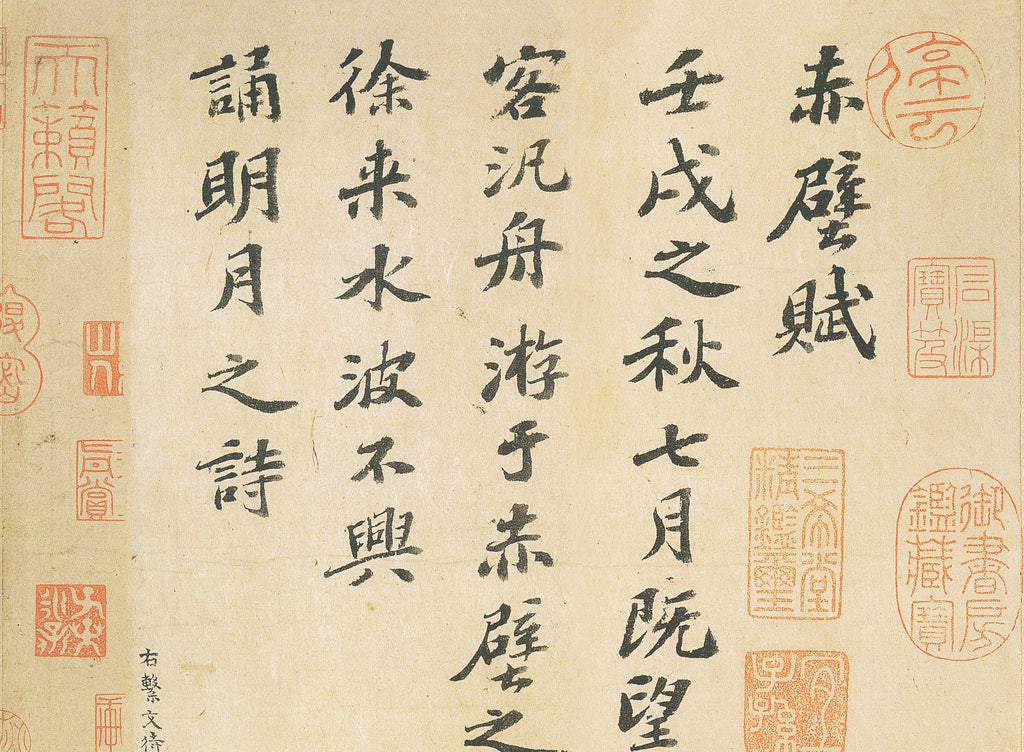 御書房鑑藏寶
三希堂精鑑璽
宜子孫
赤壁賦
壬戌之秋七月既望
客汎舟游于赤壁之
徐来水波不興
誦明月之詩
右繫文待
天籟閣